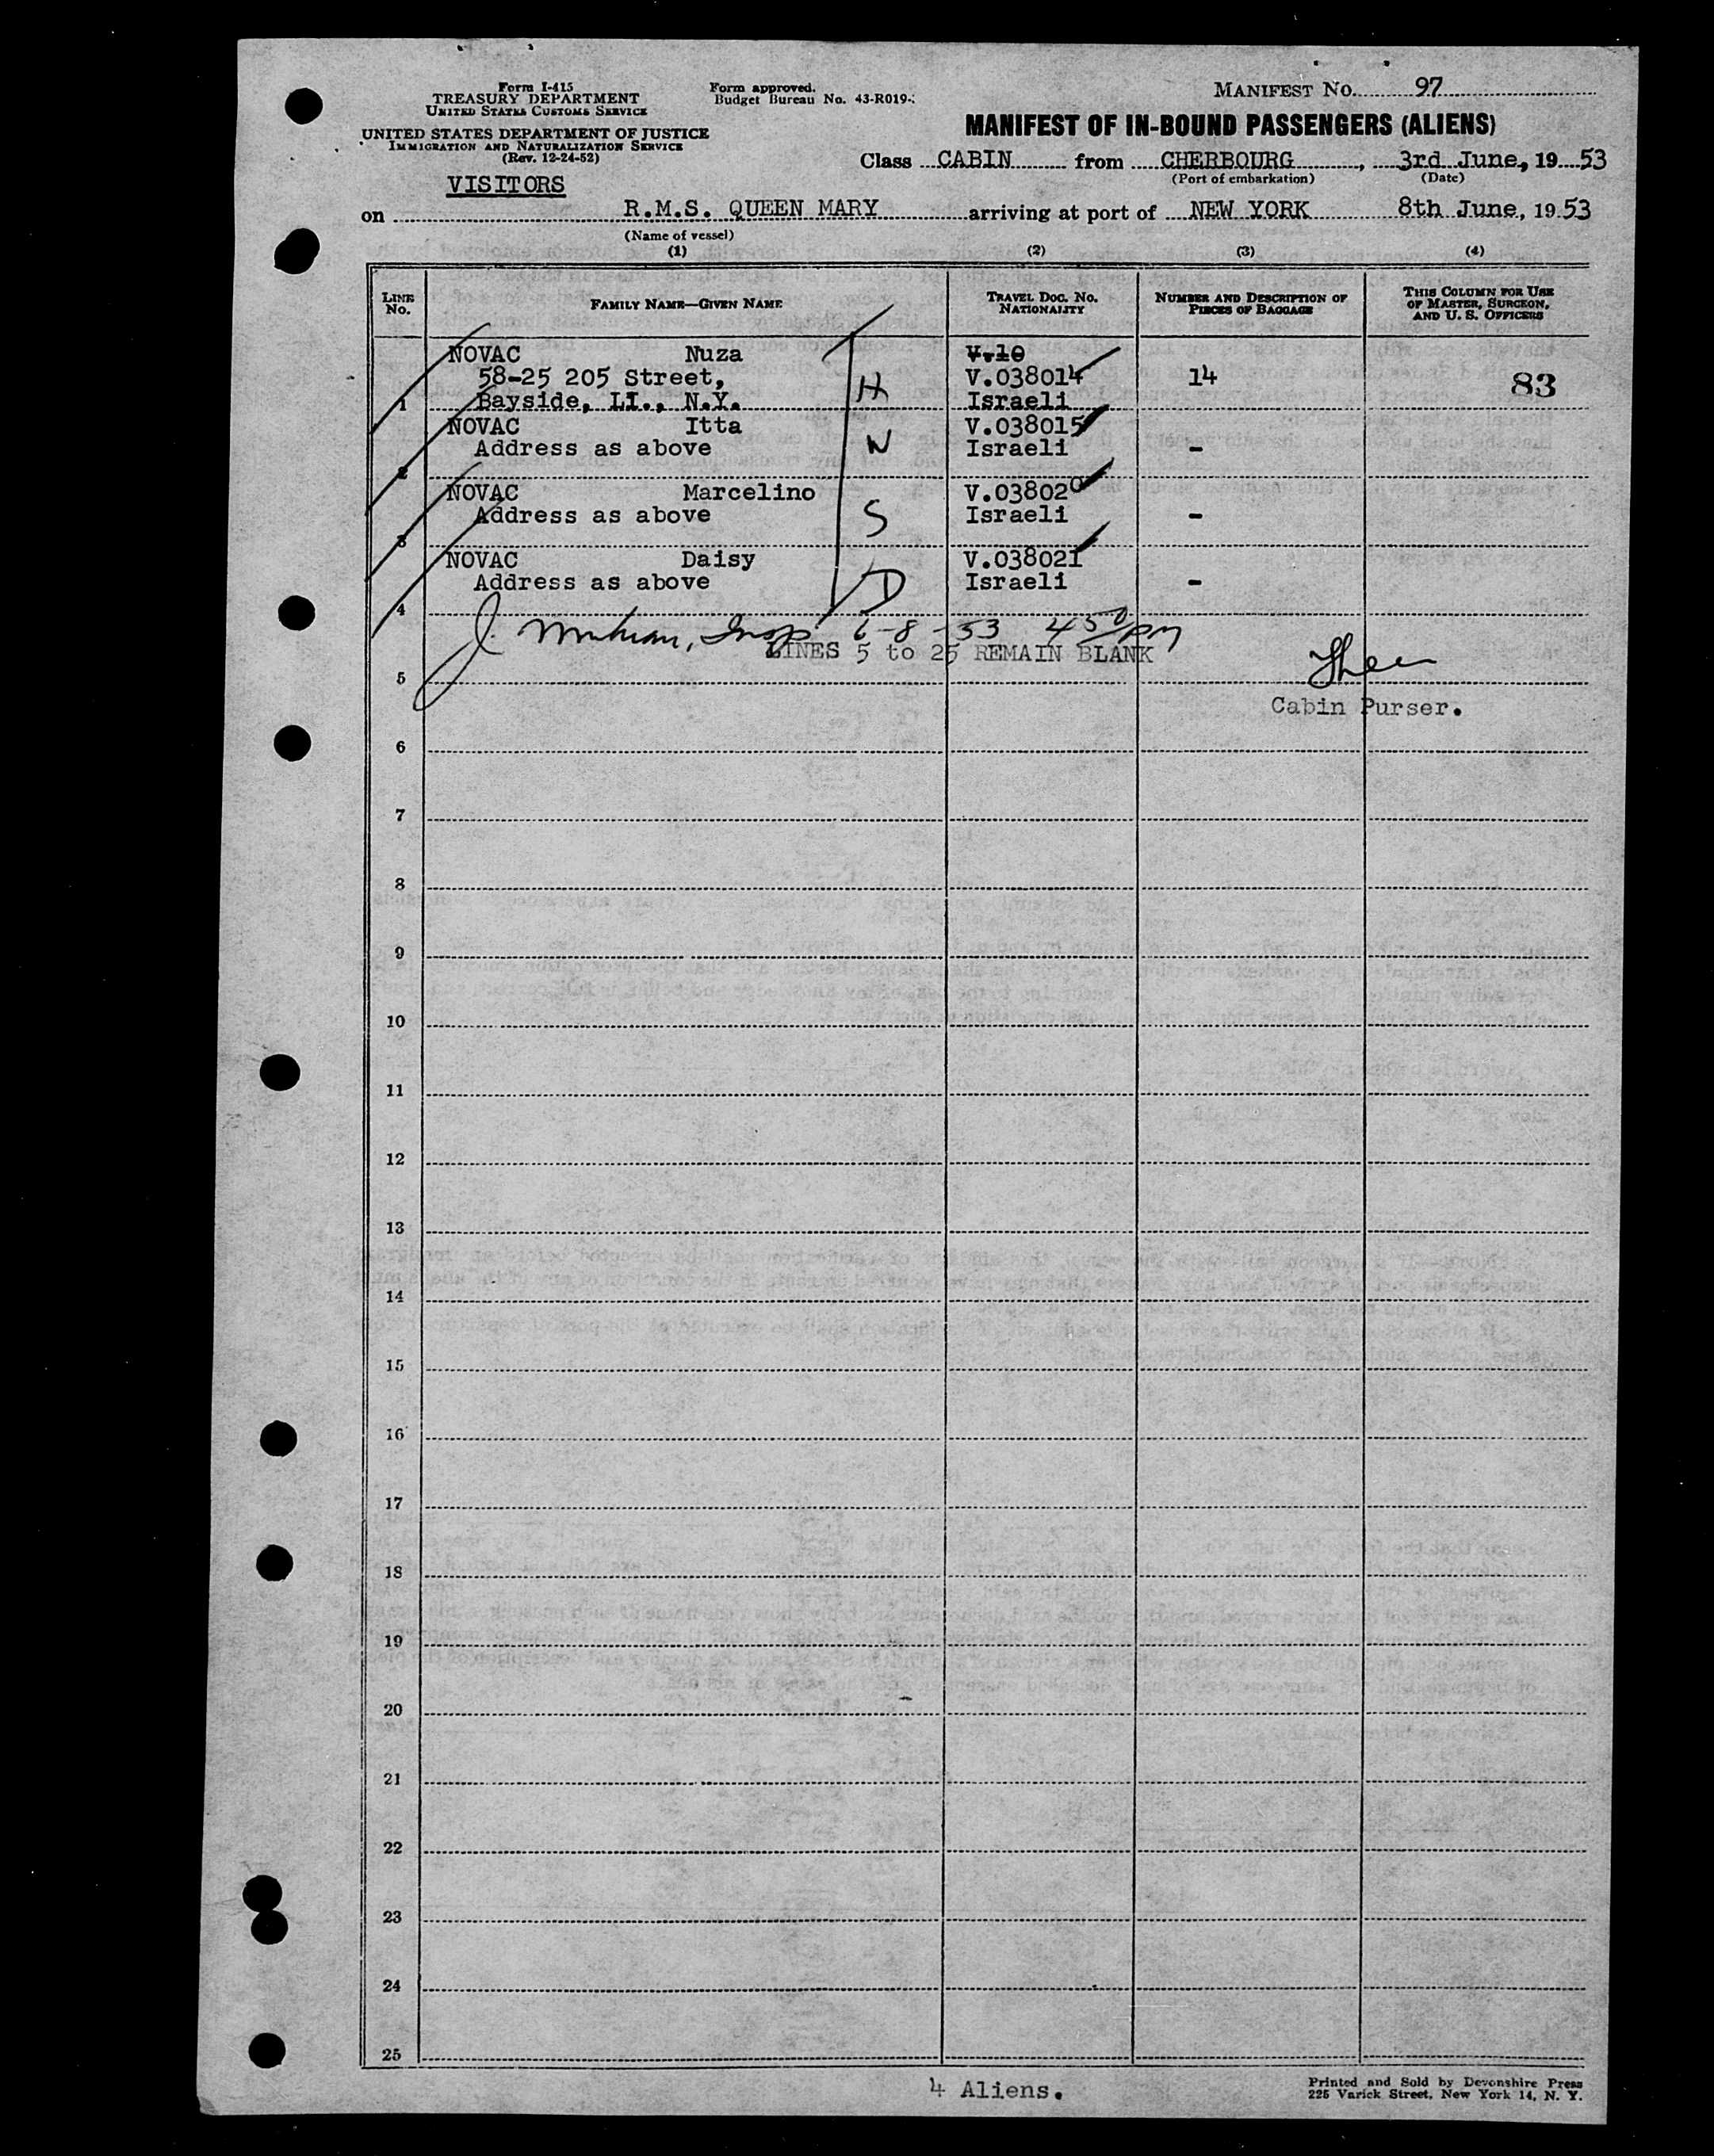 Form I-415
TREASURY DEPARTMENT
UNITED STATES CUSTOMS SERVICE
UNITED STATES DEPARTMENT OF JUSTICE
IMMIGRATION AND NATURALIZATION SERVICE
(Rev. 12-24-52)
Form approved.
Budget Bureau No. 43-R019-
MANIFEST NO. 97
MANIFEST OF IN-BOUND PASSENGERS (ALIENS)
Class CABIN from CHERBOURG, 3rd June, 1953
(Port of embarkation) (Date)
VISITORS
on R.M.S. QUEEN MARY arriving at port of NEW YORK 8th June, 1953
(Name of vessel)
(1) (2) (3) (4)
LINE No. FAMILY NAME—GIVEN NAME TRAVEL DOC. NO. NATIONALITY NUMBER AND DESCRIPTION OF PIECES OF BAGGAGE THIS COLUMN FOR USE OF MASTER, SURGEON, AND U. S. OFFICERS
NOVAC Nuza V.10
58-25 205 Street, H V.038014 14 83
1 Bayside, LI., N.Y. Israeli
NOVAC Itta V.038015
Address as above W Israeli -
2
NOVAC Marcelino V.038020
Address as above S Israeli -
3
NOVAC Daisy V.038021
Address as above D Israeli -
4
J. Insp. 6-8-53 4 50 PM
LINES 5 to 25 REMAIN BLANK
5
Cabin Purser.
6
7
8
9
10
11
12
13
14
15
16
17
18
19
20
21
22
23
24
25
4 Aliens.
Printed and Sold by Devonshire Press
225 Varick Street, New York 14, N. Y.